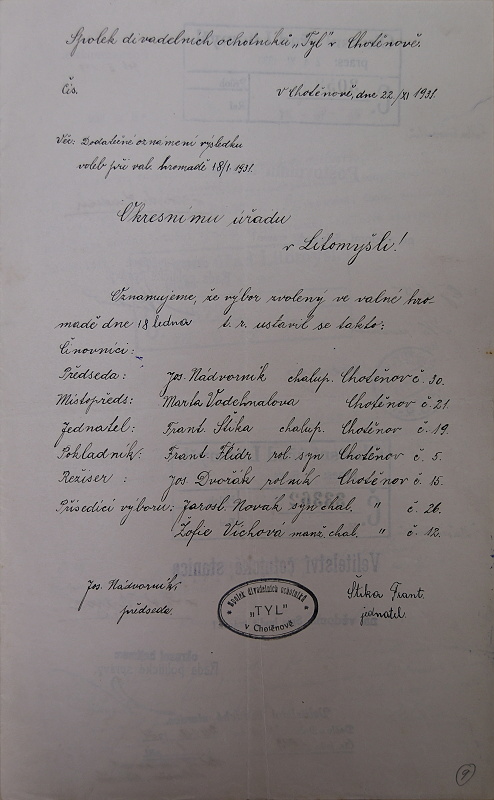 Spolek divadelních ochotníků „Tyl" v Chotěnově.
Čís. V Chotěnově, dne 22./XI 1931.
Věc: Dodatečné oznámení výsledku
voleb při val. hromadě 18/1. 1931.
Okresnímu úřadu
v Litomyšli!
Oznamujeme, že výbor zvolený ve valné hro
madě dne 18 ledna t. r. ustavil se takto:
Činovníci:
Předseda: Jos. Nádvorník chalup. Chotěnov č. 30.
Místopředs: Marta Vodehnalova Chotěnov č. 21.
Jednatel: Frant. Štika chalup. Chotěnov č. 19.
Pokladník: Frant. Flídr rol. syn Chotěnov č. 5.
Režiser: Jos Dvořák rolník Chotěnov č. 15.
Přísedící výboru: Jarosl. Novák syn chal. " č. 26.
Žofie Víchová manž. chal. " č. 12.
Jos. Nádvorník
předseda.
Spolek divadelních ochotníků
„TYL"
v Chotěnově
Štika Frant.
jednatel.
9